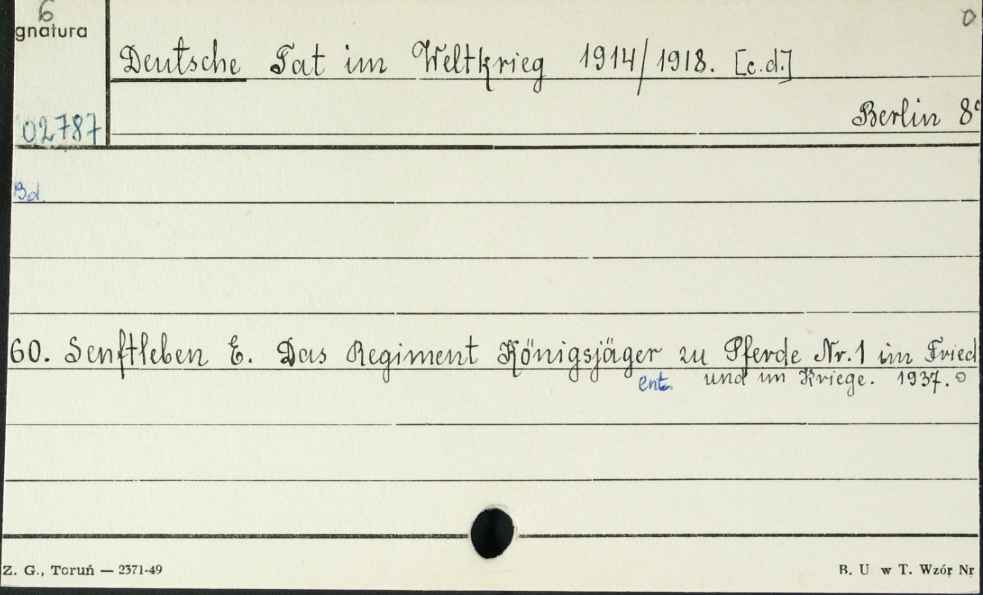 6
gnatura
0
Deutsche Tat im Weltkrieg 1914/1918. [c.d.]
Berlin 8°
02787
Bd.
60. Senftleben E. Das Regiment Königsjäger zu Pferde Nr. 1 im Fried
ent. und im Kriege. 1937.
Z. G., Toruń — 2371-49
B. U w T. Wzór Nr